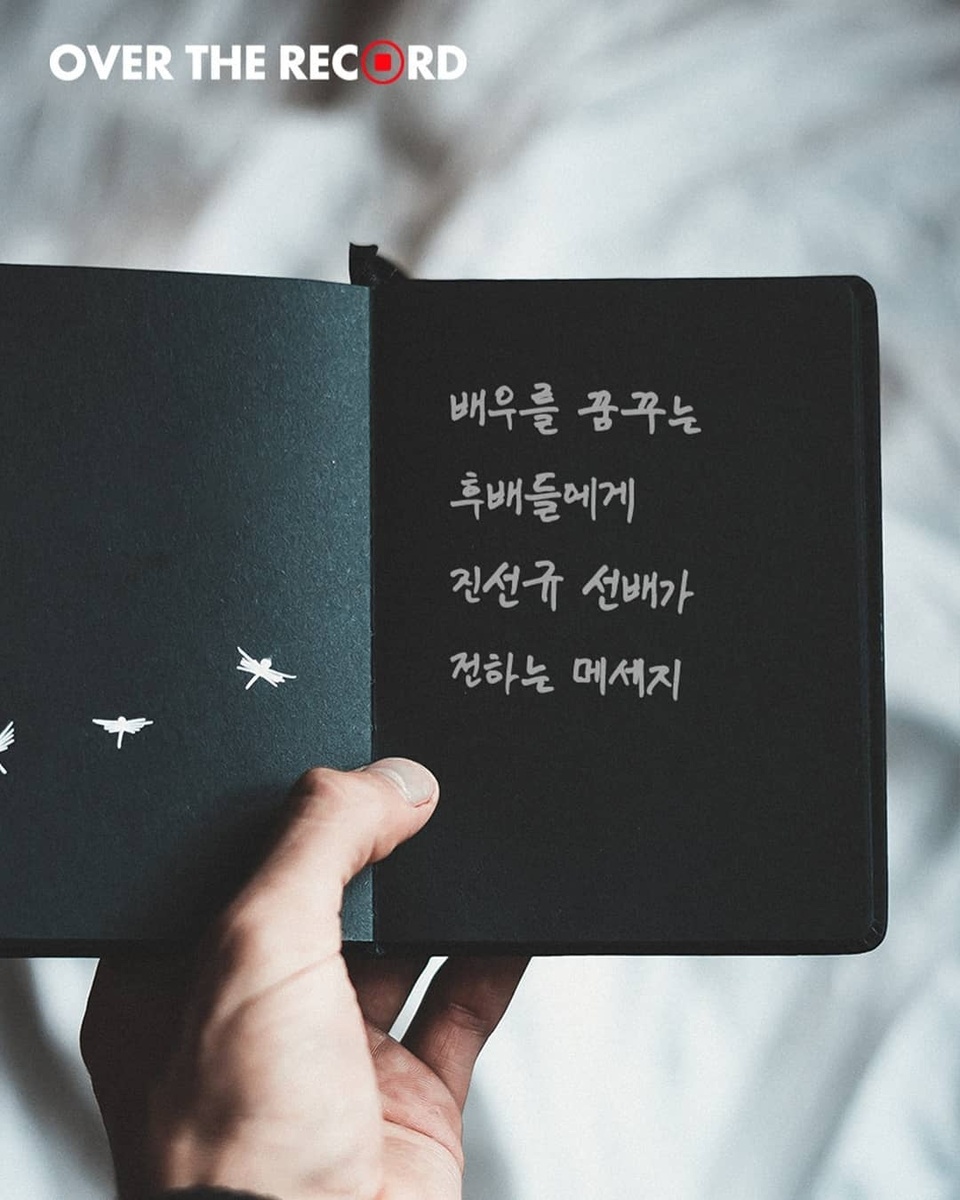 OVER THE RECORD
배우를 꿈꾸는
후배들에게
진선규 선배가
전하는 메세지